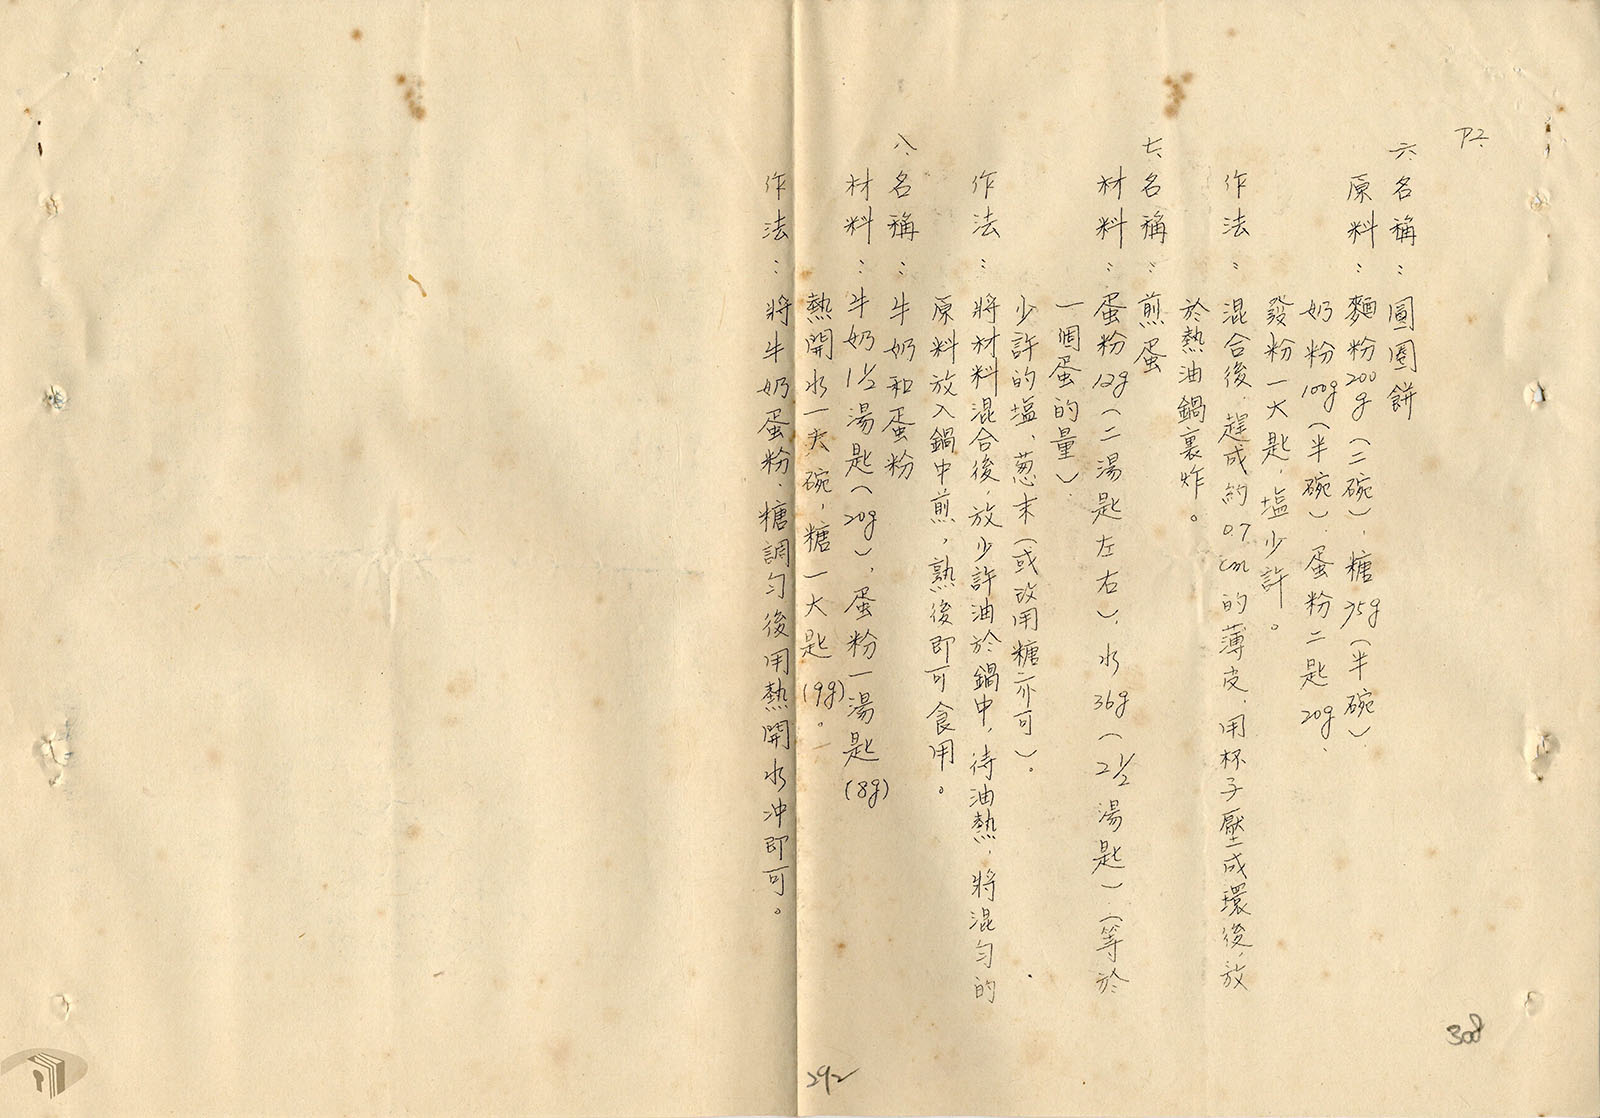 P2.
六、名稱：圓圈餅
原料：麵粉200g（二碗）、糖75g（半碗）
奶粉100g（半碗）、蛋粉二匙20g、
發粉一大匙，塩少許。
作法：混合後，趕成約0.7cm的薄皮，用杯子壓成環後，放
於熱油鍋裏炸。
七、名稱：煎蛋
材料：蛋粉12g（二湯匙左右）、水36g（2 1/2湯匙）（等於
一個蛋的量）、
少許的塩、葱末（或改用糖亦可）。
作法：將材料混合後，放少許油於鍋中，待油熱，將混匀的
原料放入鍋中煎，熟後即可食用。
八、名稱：牛奶和蛋粉
材料：牛奶1 1/2湯匙（20g）、蛋粉一湯匙(8g)
熱開水一大碗，糖一大匙(9g)。
作法：將牛奶蛋粉、糖調匀後用熱開水冲即可。
308
292